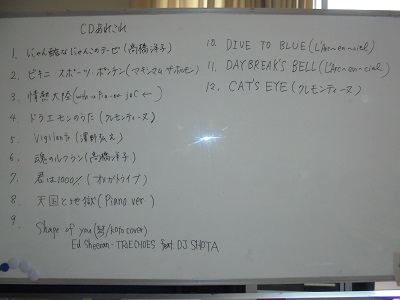 CDあれこれ
1. じゃん酷なにゃんこのテーゼ(高橋洋子)
2. ビキニ・スポーツ・ポンチン(マキシマムザホルモン)
3. 情熱大陸(with
4. ドラえモンのうた(クレモンティーヌ)
5. Vigilante(澤野弘之)
6. 魂のルフラン(高橋洋子)
7. 君は1000%(オメガトライブ)
8. 天国と地獄(Piano ver)
9.
Shape of you(箏/koto cover)
Ed Sheeran - TRiECHOES feat. DJ SHOTA
10. DIVE TO BLUE(L'Arc~en~ciel)
11. DAYBREAK'S BELL(L'Arc~en~ciel)
12. CAT'S EYE(クレモンティーヌ)